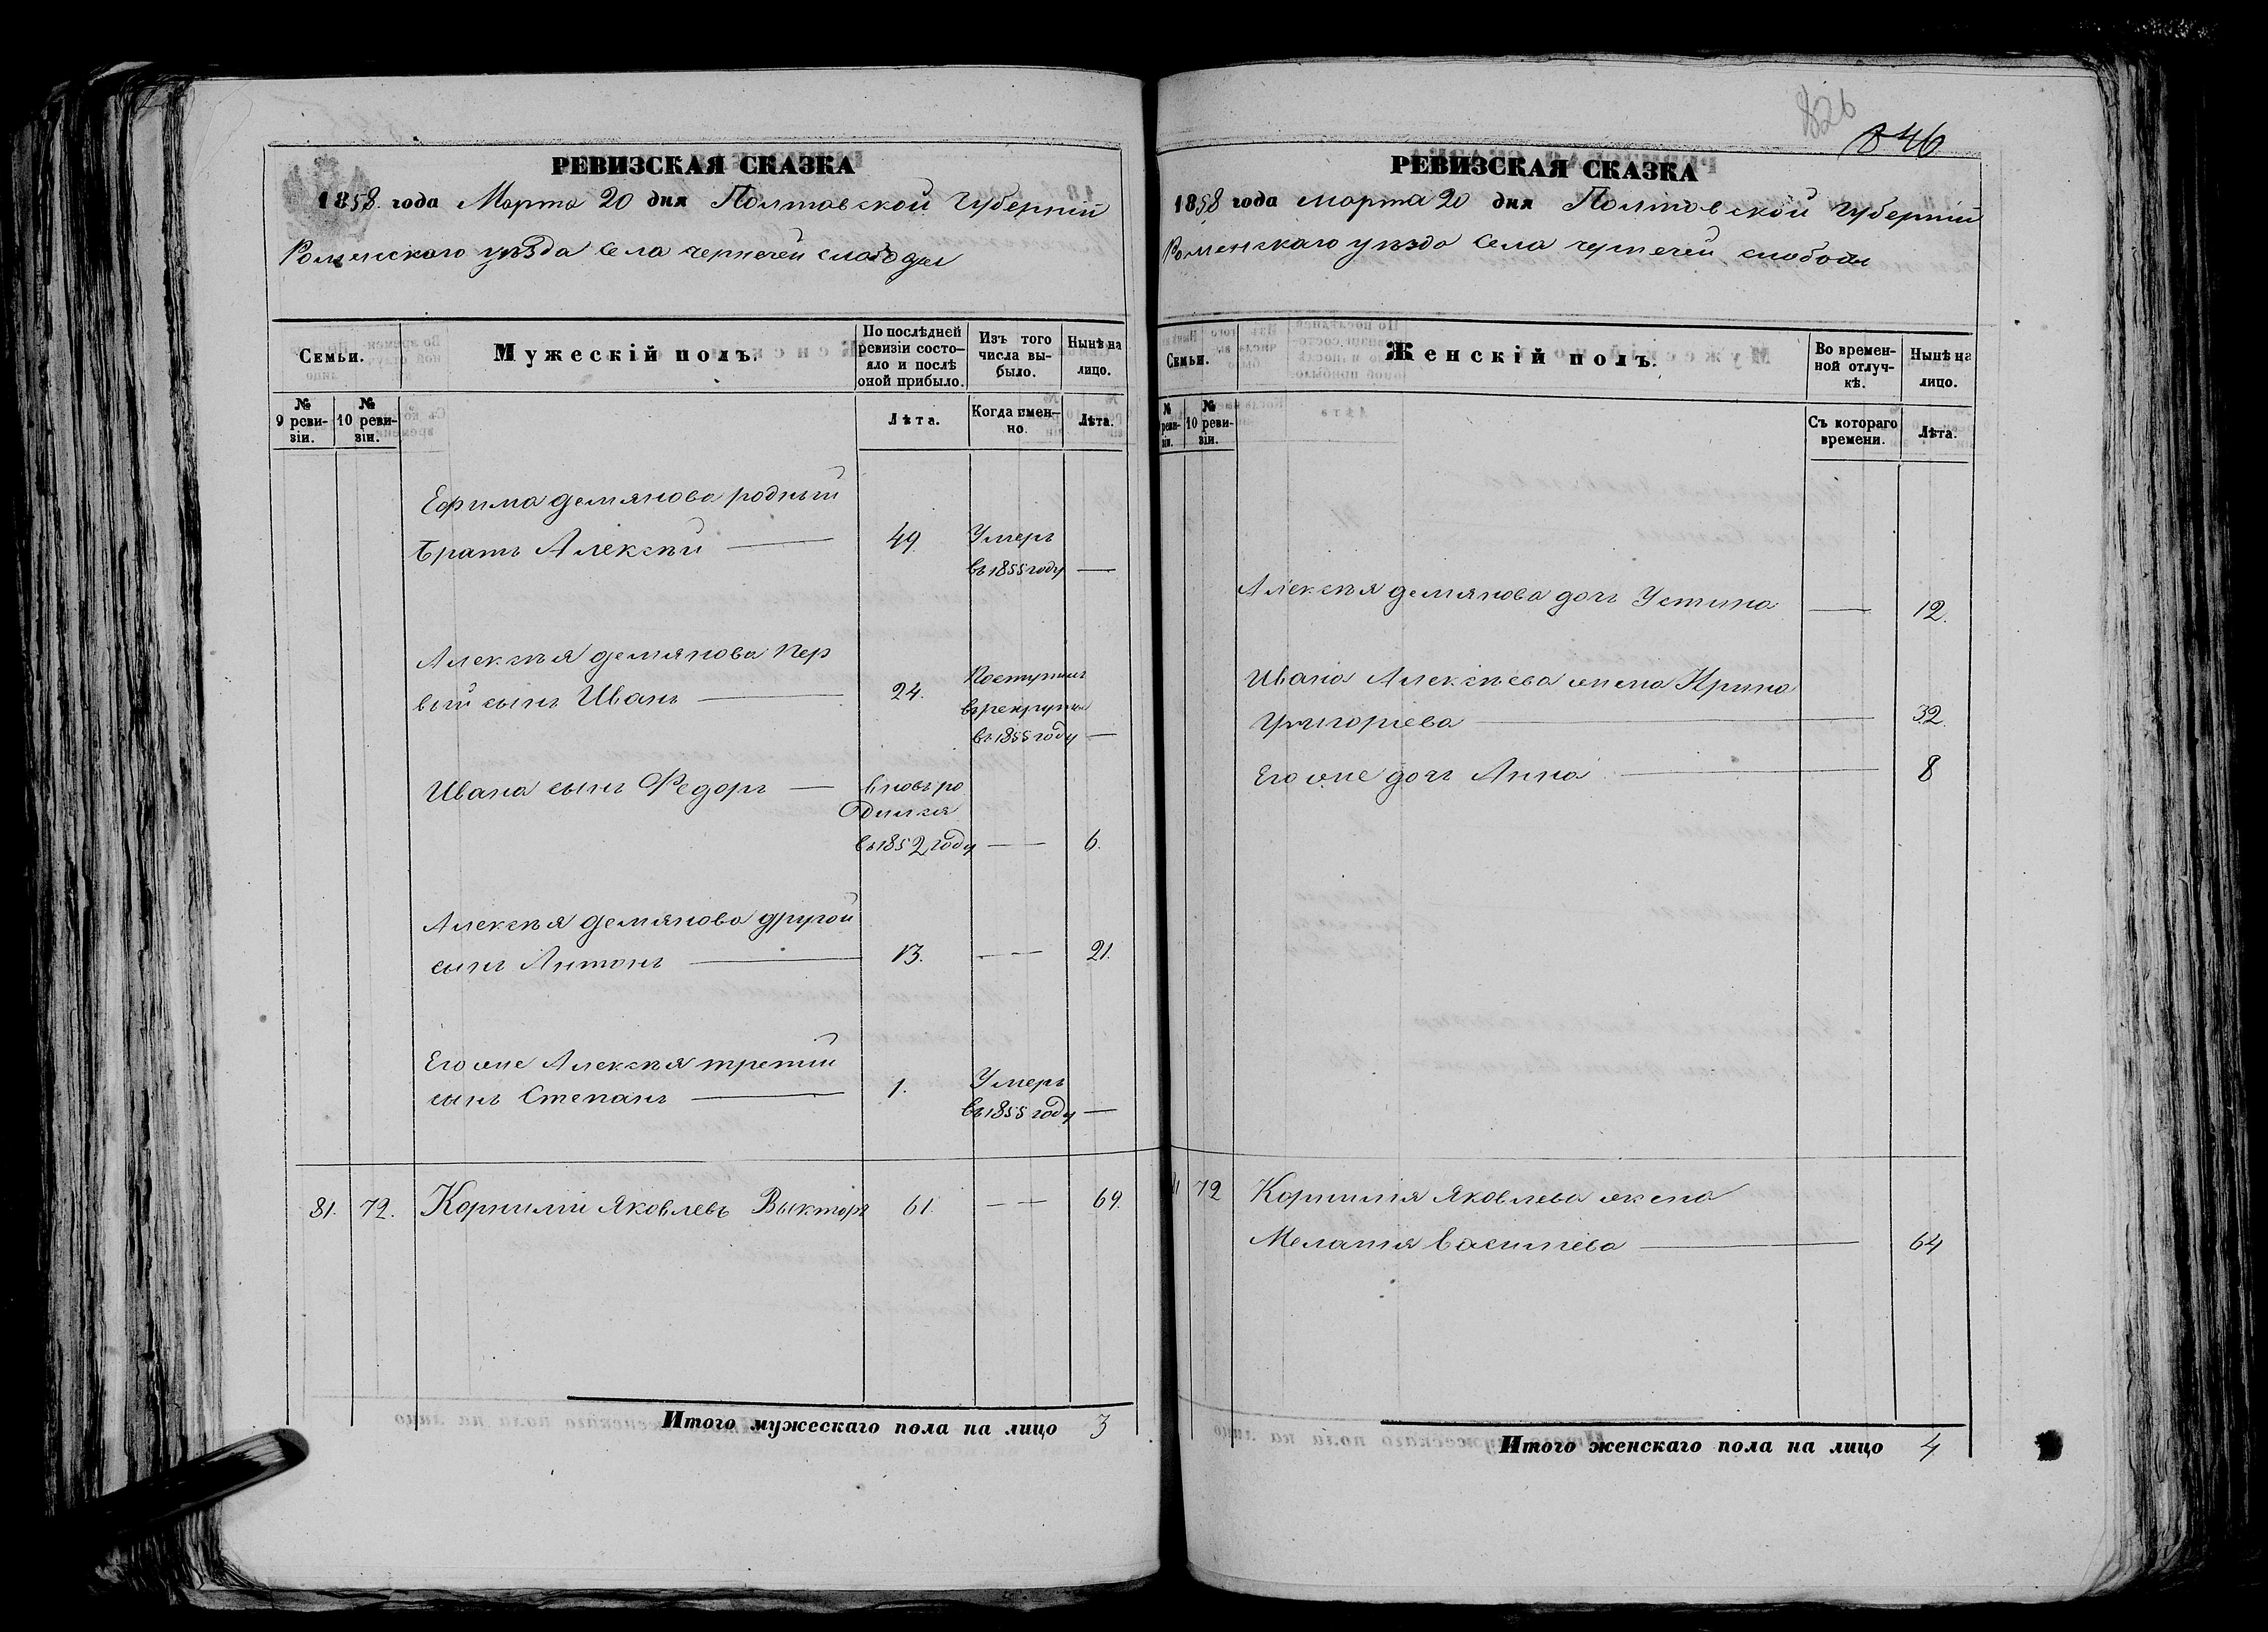 РЕВИЗСКАЯ СКАЗКА
1858 года Марта 20 дня Полтавской Губерніи
Роменского уѣзда Села чернечей слободы
Семьи.
Мужескій полъ.
По послѣдней ревизіи состояло и послѣ оной прибыло.
Изъ того числа выбыло.
Нынѣ на лицо.
№ 9 ревизіи.
№ 10 ревизіи.
Лѣта.
Когда именно.
Лѣта.
Ефима демянова родный
братъ Алексѣй — 49. Умеръ
въ 1855 году —
Алексѣя демянова пер
вый сынъ Иванъ — 24. Поступилъ
въ рекруты
въ 1855 году —
Ивана сынъ Федоръ — вновь ро
дился
въ 1852 году — — 6.
Алексѣя демянова другой
сынъ Антонъ — 13. — — 21.
Его же Алексѣя третій
сынъ Степанъ — 1. Умеръ
въ 1855 году —
81. 72. Корнилій Яковлевъ Выкторъ 61. — — 69.
Итого мужескаго пола на лицо 3
826
846
РЕВИЗСКАЯ СКАЗКА
1858 года марта 20 дня Полтавской Губерніи
Роменскаго уѣзда Села чернечей слободы
Семьи.
Женскій полъ.
Во временной отлучкѣ.
Нынѣ на лицо.
№ 9 ревизіи.
№ 10 ревизіи.
Съ котораго времени.
Лѣта.
Алексѣя демянова дочь Устина — 12.
Ивана Алексѣева жена Ирина
Григориева — 32.
Его же дочь Анна — 8
72 Корнилія Яковлева жена
Мелания Василиева — 64
Итого женскаго пола на лицо 4